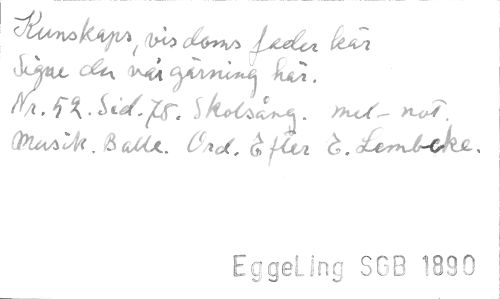 Kunskaps, visdoms fader kär
Signe du vår gärning här.
Nr. 52. Sid. 78. Skolsång. mel-not.
Musik. Balle. Ord. Efter E. Lembcke.
EggeLing SGB 1890